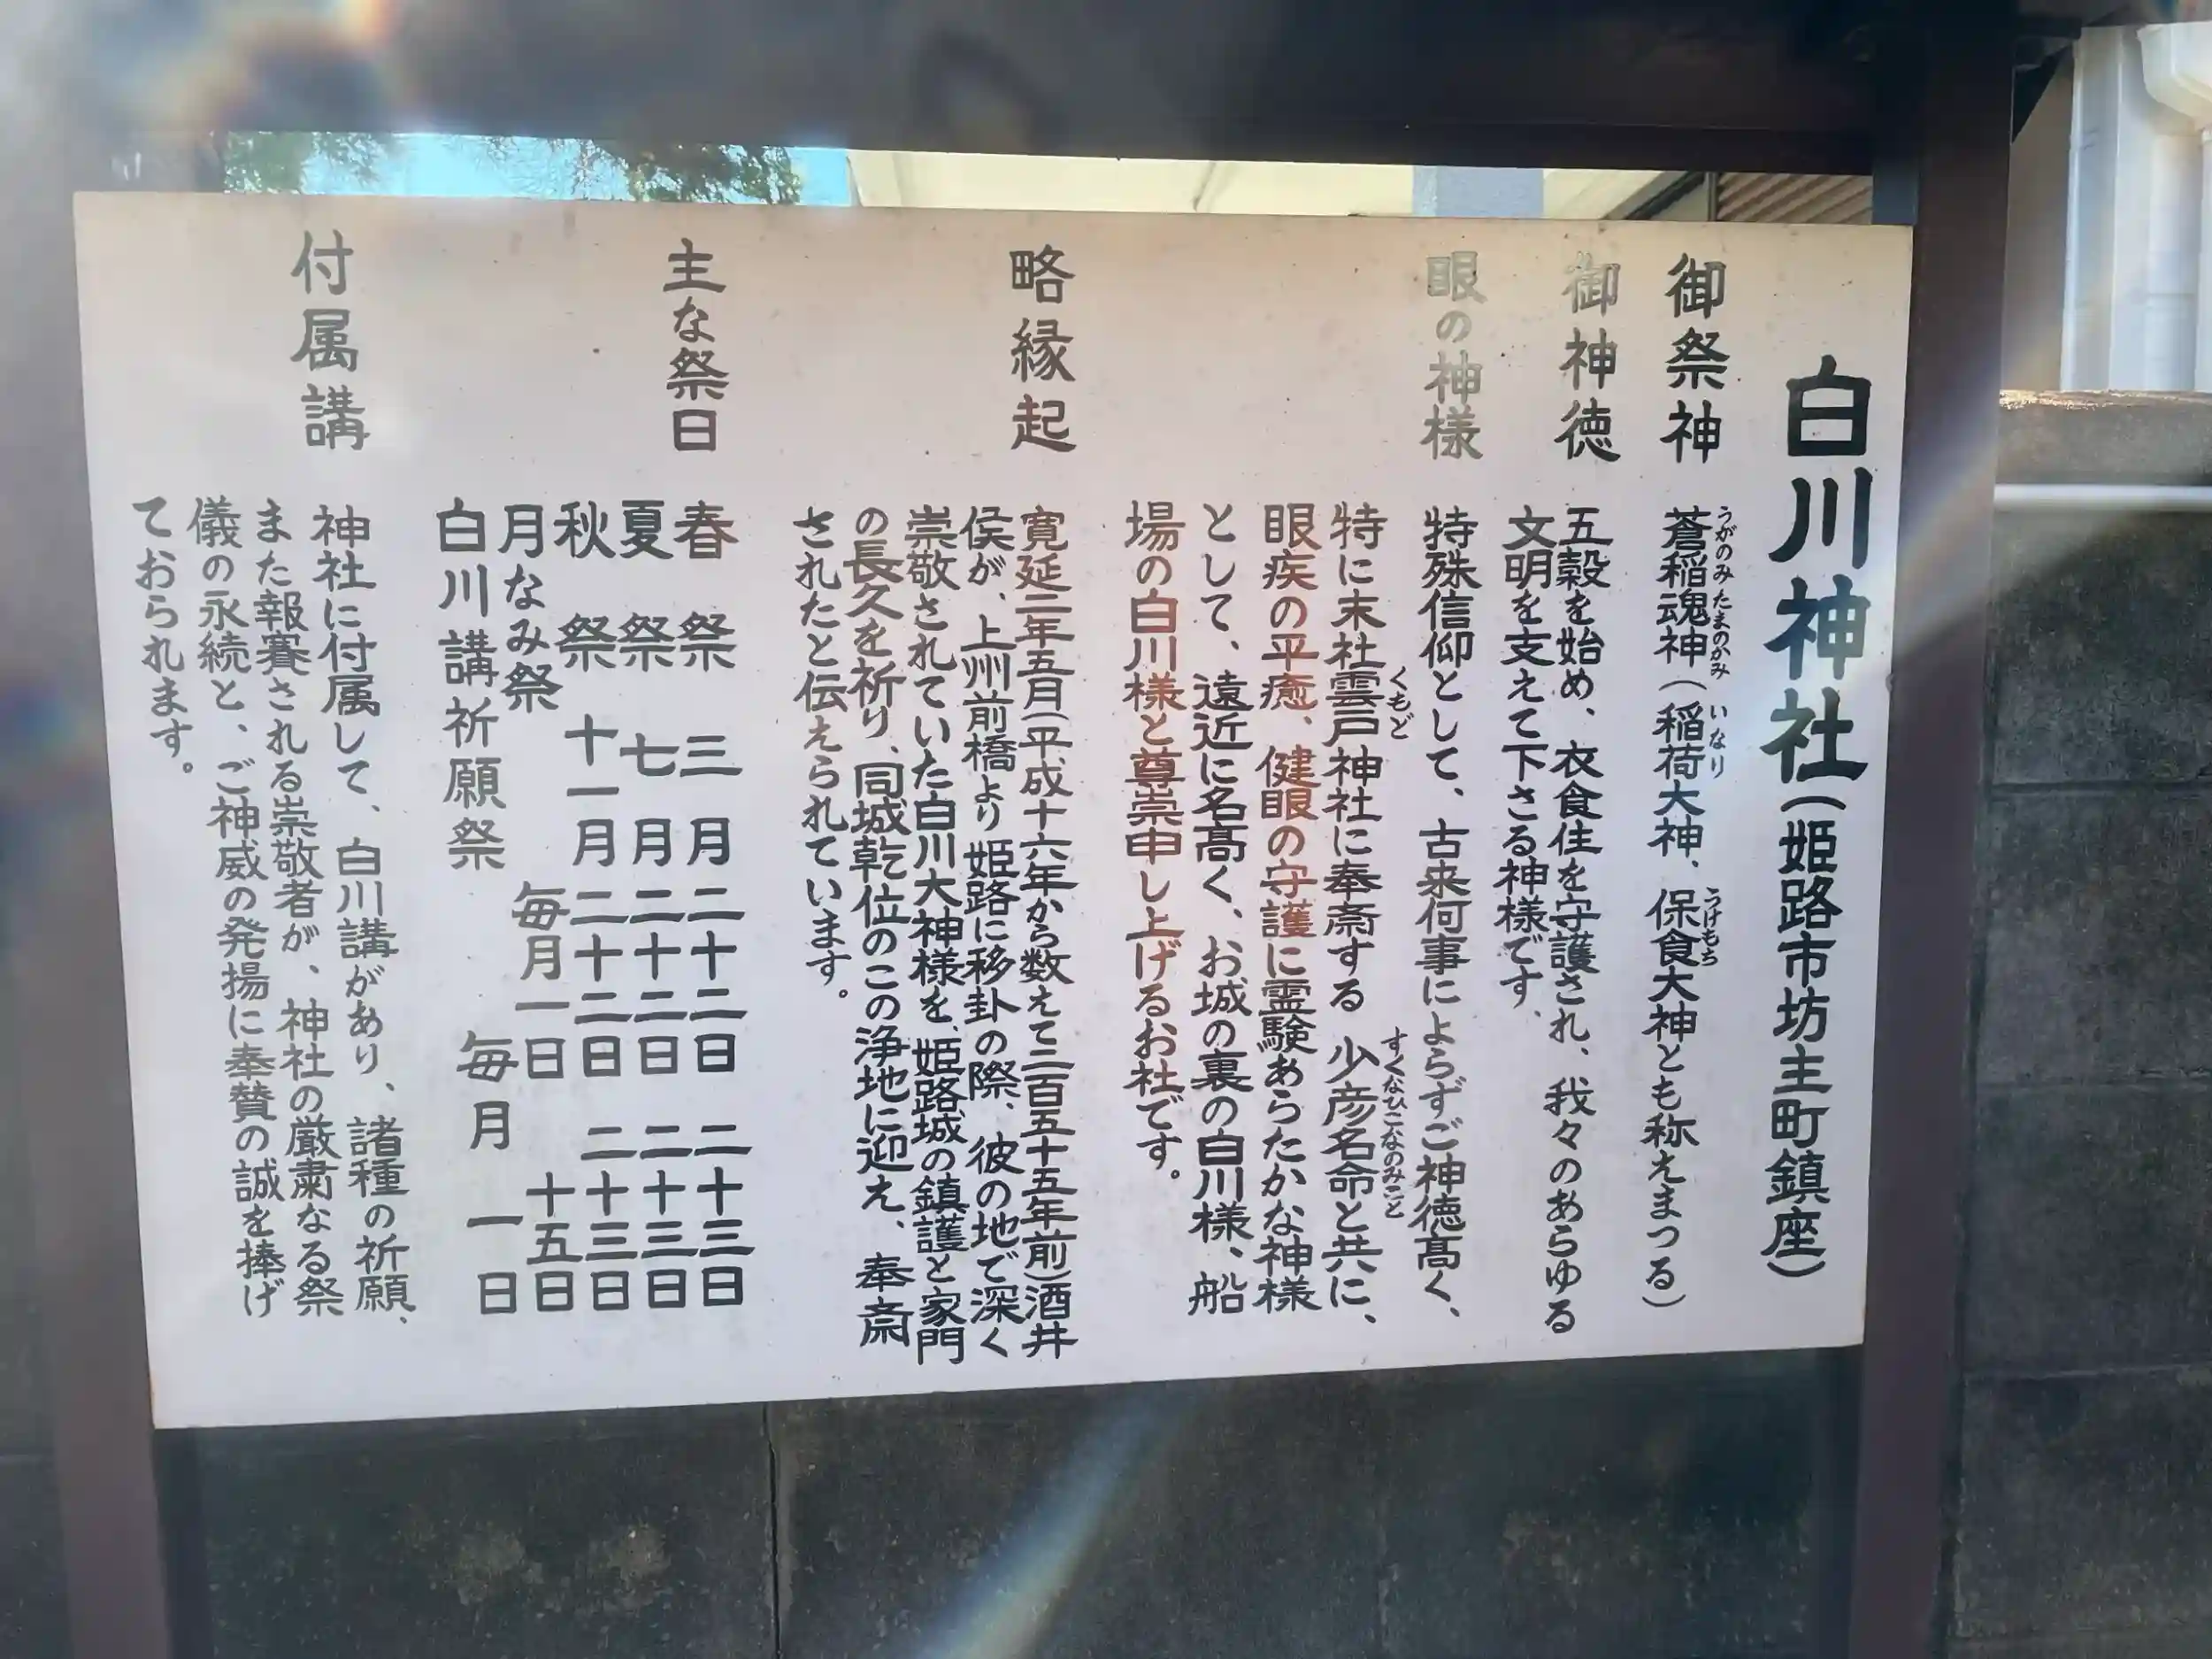 白川神社(姫路市坊主町鎮座)
御祭神
蒼稲魂神(稲荷大神、保食大神とも称えまつる)
うがのみたまのかみ
いなり
うけもち
御神徳
五穀を始め、衣食住を守護され、我々のあらゆる
文明を支えて下さる神様です.
眼の神様
特殊信仰として、古来何事によらずご神徳高く、
特に末社雲戸神社に奉斎する 少彦名命と共に、
くもど
すくなひこなのみこと
眼疾の平癒、健眼の守護に霊験あらたかな神様
として、遠近に名高く、お城の裏の白川様、船
場の白川様と尊崇申し上げるお社です。
略縁起
寛延二年五月(平成十六年から数えて二百五十五年前)酒井
侯が、上州前橋より姫路に移卦の際、彼の地で深く
崇敬されていた白川大神様を、姫路城の鎮護と家門
の長久を祈り、同城乾位のこの浄地に迎え、奉斎
されたと伝えられています。
主な祭日
春祭 三月二十二日 二十三日
夏祭 七月二十二日 二十三日
秋祭 十一月二十二日 二十三日
月なみ祭 毎月一日 十五日
白川講祈願祭 毎月 一日
付属講
神社に付属して、白川講があり、諸種の祈願、
また報賽される崇敬者が、神社の厳粛なる祭
儀の永続と、ご神威の発揚に奉賛の誠を捧げ
ておられます。